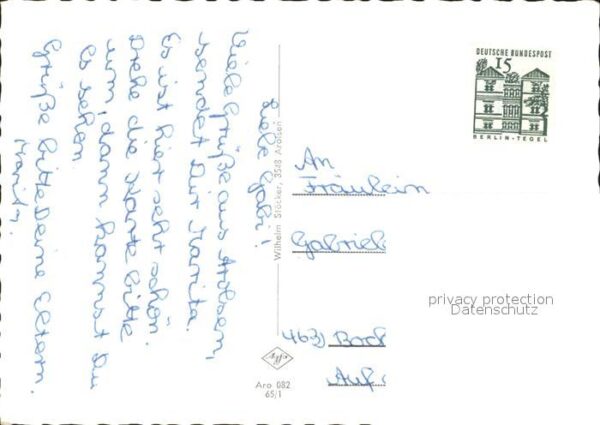 Liebe Gabi!
Viele Grüße aus Arolsen,
sendet Dir Marita.
Es ist hier sehr schön.
Drehe die Karte bitte
um, dann kannst Du
es sehen.
Grüße bitte Deine Eltern.
Marita.
Wilhelm Stöcker, 3548 Arolsen
Agfa
Aro 082
65/1
DEUTSCHE BUNDESPOST
15
BERLIN-TEGEL
An
Fräulein
Gabriel
463) Boch
Auf
privacy protection
Datenschutz